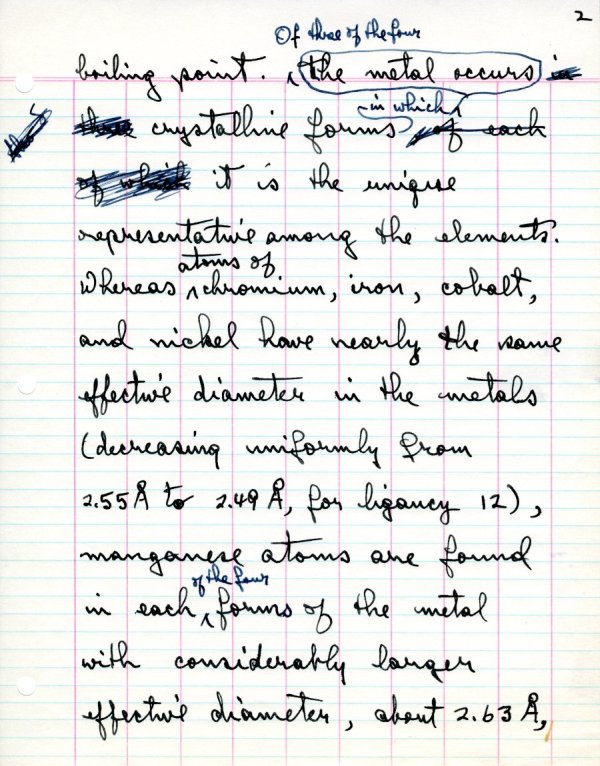 2
Of three of the four
boiling point. ‸ the metal occurs in
three crystalline forms of each
in which
of which it is the unique
representative among the elements.
atoms of
Whereas ‸ chromium, iron, cobalt,
and nickel have nearly the same
effective diameter in the metals
(decreasing uniformly from
2.55 Å to 2.49 Å, for ligancy 12),
manganese atoms are found
of the four
in each ‸ forms of the metal
with considerably larger
effective diameter, about 2.63 Å,